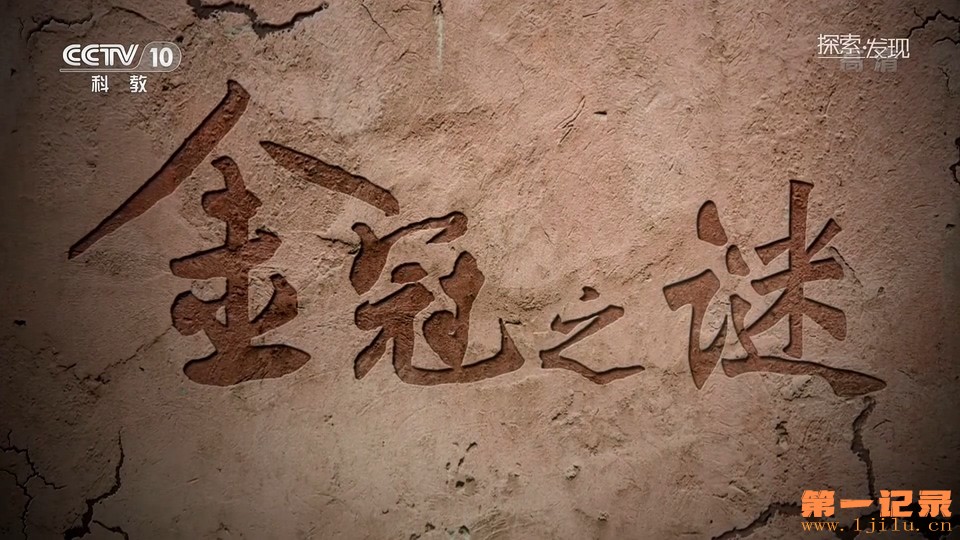 CCTV 10
科教
探索·发现
高清
金冠之谜
第一记录
www.1jilu.cn